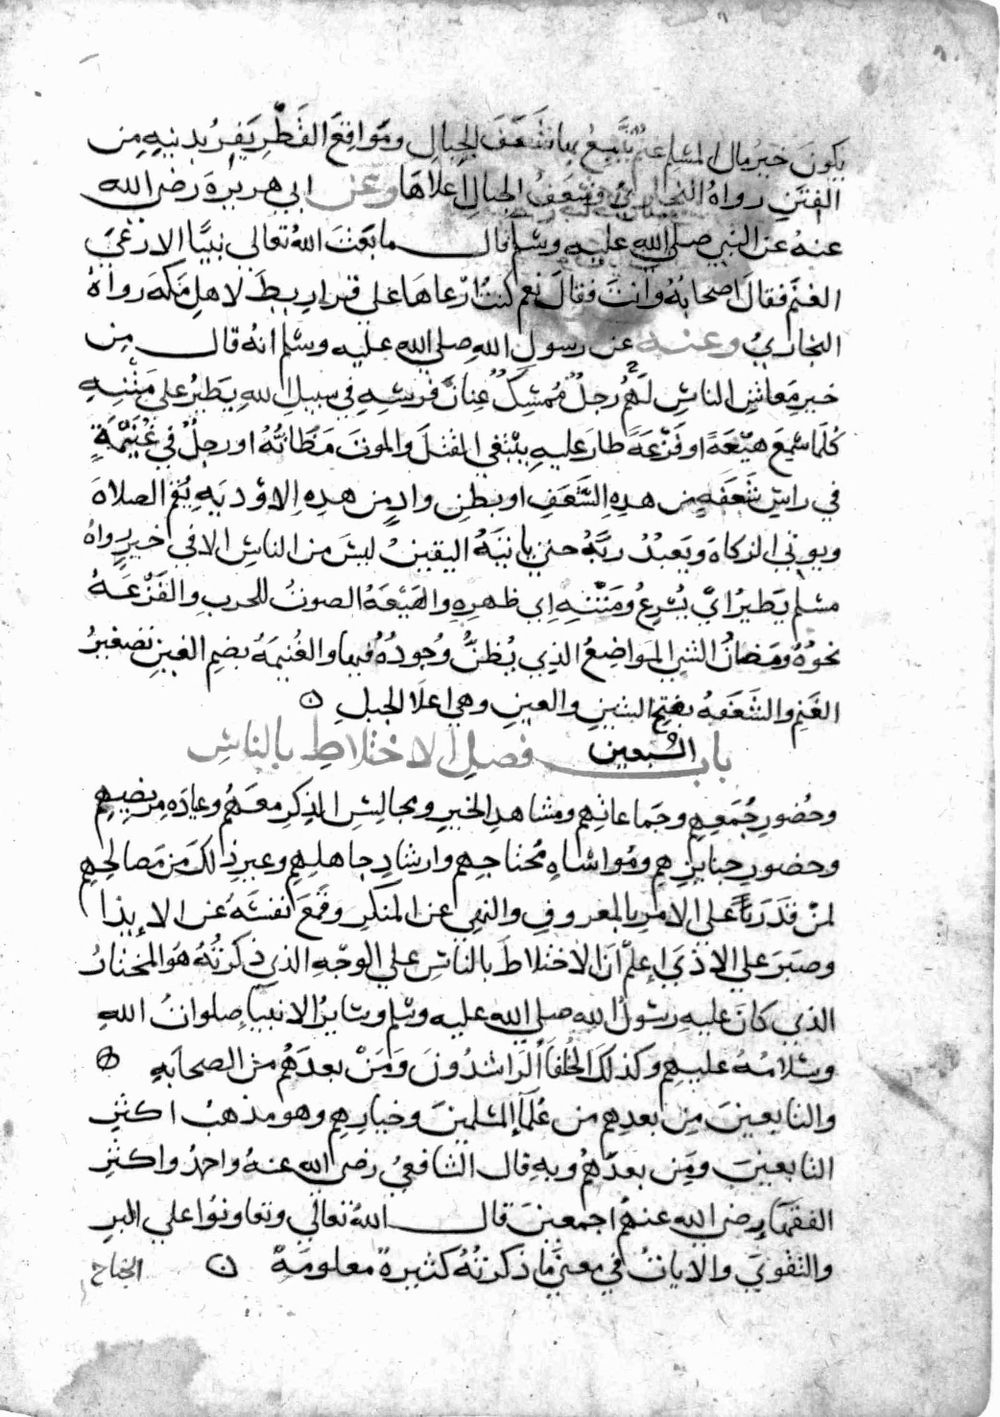 يكونَ خيرُ مالِ المسلمِ غنمٌ يتّبعُ بها شَعَفَ الجِبالِ ومَوَاقِعَ القَطْرِ يَفِرُّ بدينِهِ مِن
الفِتَنِ رواهُ البخاريُّ وشَعَفُ الجبالِ اعلاهَا وعن ابي هريرةَ رضي الله
عنهُ عن النبي صلى الله عليه وسلم قال ما بَعَثَ اللهُ تعالى نبيًّا الا رَعَى
الغنمَ فقالَ اصحابُهُ وانتَ فقالَ نعم كنتُ ارْعاهَا على قراريطَ لاهلِ مَكةَ رواهُ
البخاريُّ وعنه عن رسولِ اللهِ صلى الله عليه وسلم انهُ قال مِن
خيرِ مَعاشِ الناسِ لَهُمْ رجلٌ مُمسِكٌ عِنانَ فَرَسِهِ في سبيلِ اللهِ يَطيرُ على مَتْنِهِ
كُلّما سَمِعَ هَيْعَةً او فَزْعَةً طارَ عليهِ يَبْتغي القتلَ والموتَ مَظانَّهُ او رجلٌ في غُنَيْمَةٍ
في راسِ شَعَفَةٍ من هذِهِ الشَّعَفِ او بطنِ وادٍ من هذِهِ الاوْديةِ يُقيمُ الصلاةَ
ويوتي الزكاةَ ويَعبُدُ ربَّهُ حتى ياتيَهُ اليقينُ ليسَ من الناسِ الا في خيرٍ رواهُ
مسلم يَطيرُ ايْ يُسْرِعُ ومَتْنُهُ اي ظهرِهِ والهَيْعَةُ الصوتُ للحربِ والفَزْعَةُ
نحوُهُ ومَظانُّ الشيِ المَواضِعُ الذِي يُظنُّ وُجودُهُ فيها والغُنيمَةُ بضم الغينِ تصغيرُ
الغَنمِ والشَعَفةُ بفتحِ الشينِ والعينِ وهي اعلَا الجبلِ ن
باب السبعين فضلِ الاختلاطِ بالناسِ
وحُضورِ جُمَعِهِم وجَماعاتِهم ومَشاهدِ الخيرِ ومجالسِ الذكرِ معَهُم وعيادةِ مريضِهِم
وحضورِ جنايزِهِم ومُواساةِ مُحتاجِهِم وارشادِ جاهلِهِم وغيرِ ذلكَ من مَصالحِهِم
لمنْ قَدَرَ على الامرِ بالمعروفِ والنهيِ عن المنكَرِ وقَمَعَ نفسَهُ عن الايذا
وصَبَرَ على الاذَى اعلمْ انَ الاختلاطَ بالناسِ على الوجْهِ الذي ذكرْتُهُ هُو المختارُ
الذي كانَ عليهِ رسولُ اللهِ صلى الله عليه وسلم وسايرُ الانبياءِ صلواتُ اللهِ
وسَلامُهُ عليهِم وكذلكَ الخُلفَاُ الراشدُونَ وَمَنْ بعدَهُم من الصحابَةِ
والتابعينَ مِن بعدِهِم من عُلَمَاءِ المسلمينَ وخيارِهِم وهو مذهبُ اكثرِ
التابعينَ ومَن بعدَهُمْ وبهِ قال الشافعيُّ رضي الله عنهُ واحمدُ واكثرُ
الفقهاءِ رضي الله عنهُم اجمعينَ قال اللهُ تعالى وتعاونُوا على البرِ
والتقوَى والاياتُ في معنى ما ذكرتُهُ كثيرةٌ معلومَةٌ ن